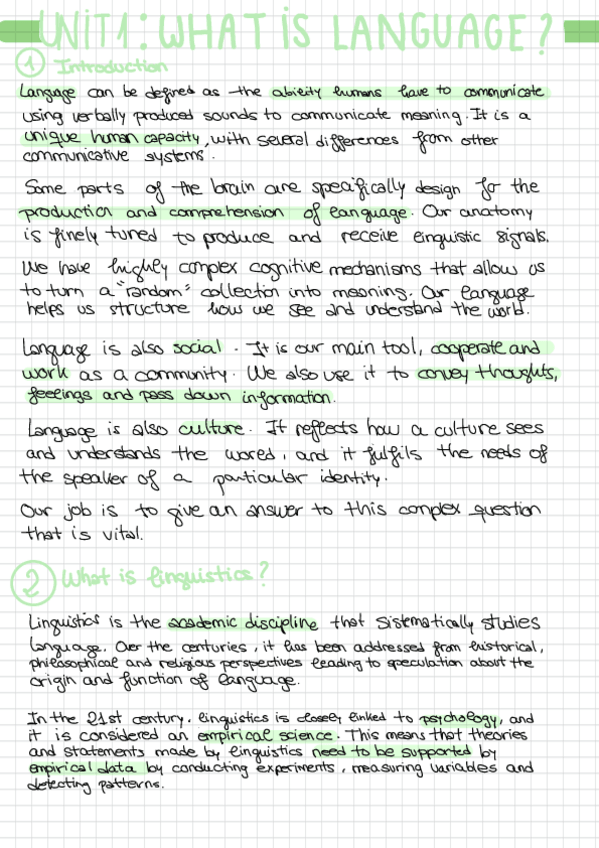 UNIT1: WHAT IS LANGUAGE?
1 Introduction
Language can be defined as the ability humans have to communicate
using verbally produced sounds to communicate meaning. It is a
unique human capacity, with several differences from other
communicative systems.
Some parts of the brain are specifically design for the
production and comprehension of language. Our anatomy
is finely tuned to produce and receive linguistic signals.
We have highly complex cognitive mechanisms that allow us
to turn a "random" collection into meaning. Our language
helps us structure how we see and understand the world.
Language is also social. It is our main tool, cooperate and
work as a community. We also use it to convey thoughts,
feelings and pass down information.
Language is also culture. It reflects how a culture sees
and understands the world, and it fulfils the needs of
the speaker of a particular identity.
Our job is to give an answer to this complex question
that is vital.
2 What is linguistics?
Linguistics is the academic discipline that sistematically studies
language. Over the centuries, it has been addressed from historical,
philosophical and religious perspectives leading to speculation about the
origin and function of language.
In the 21st century, linguistics is closely linked to psychology, and
it is considered an empirical science. This means that theories
and statements made by linguistics need to be supported by
empirical data by conducting experiments, measuring variables and
detecting patterns.